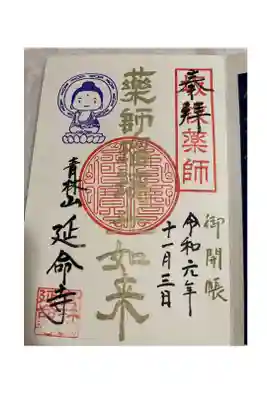 奉拝
薬師
御開帳
令和元年
十一月三日
薬師瑠璃光如来
青林山
延命寺